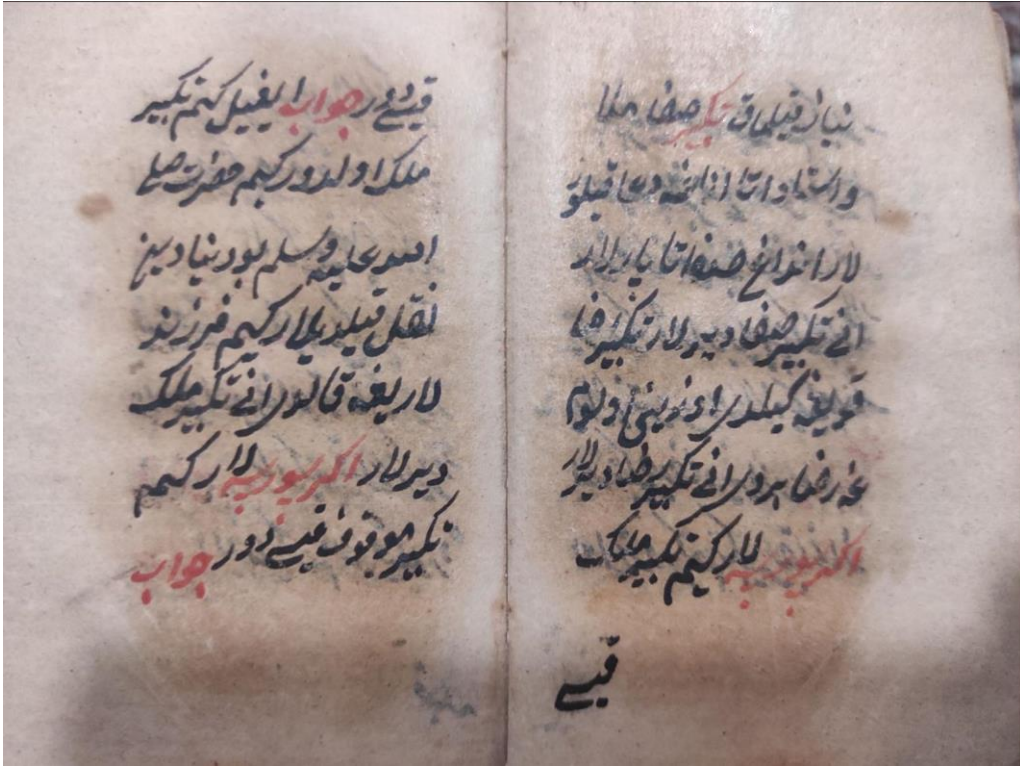 نیاز قیلماق تکبیر صفا ملا
و استاد و اتا اناغه دعا قیلور
لار اندراغ صفا تاپارلار
انی تکبیر صفا دیرلار تکبیر رضا
قویغه کیلدی اوزینی اولوم
غه رضا بردی انی تکبیر رضا دیرلار
اکر سورسه لار کیم تکبیر ملک
قیسی
قیسی دور جواب ایغیل کیم تکبیر
ملک اولدور کیم حضرت صلی
الله علیه وسلم بو دنیادین
نقل قیلدیلار کیم فرزند
لاریغه قالدی انی تکبیر ملک
دیرلار اکر سورسه لار کیم
تکبیر موقوف قیسی دور جواب